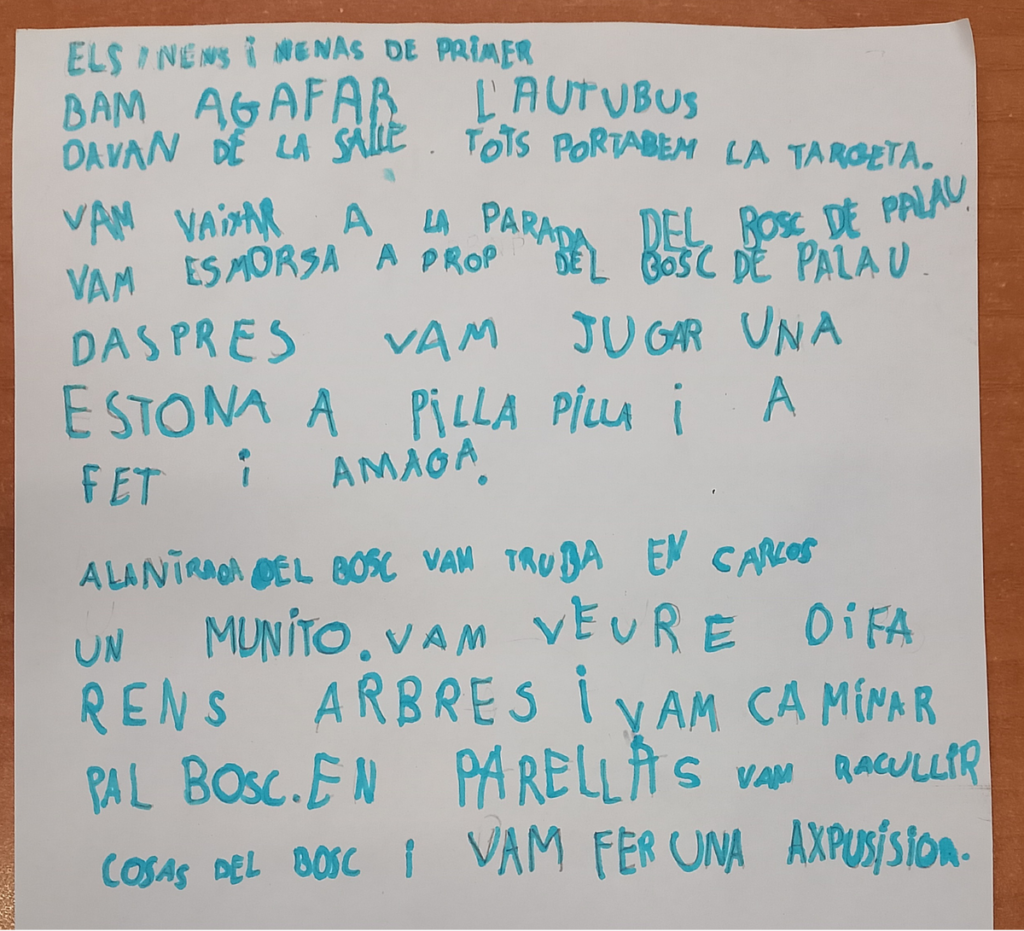 ELS NENS i NENAS DE PRIMER
BAM AGAFAR L'AUTUBUS
DAVAN DE LA SALLE. TOTS PORTABEM LA TARGETA.
VAM VAiXAR A LA PARADA DEL BOSC DE PALAU.
VAM ESMORSA A PROP DEL BOSC DE PALAU.
DASPRES VAM JUGAR UNA
ESTONA A PiLLA PiLLA i A
FET i AMAGA.
ALANTRADA DEL BOSC VAM TRUBA EN CARLOS
UN MUNiTO. VAM VEURE DiFA
RENS ARBRES i VAM CAMiNAR
PAL BOSC. EN PARELLAS VAM RACULLIR
COSAS DEL BOSC i VAM FER UNA AXPUSiSiON.